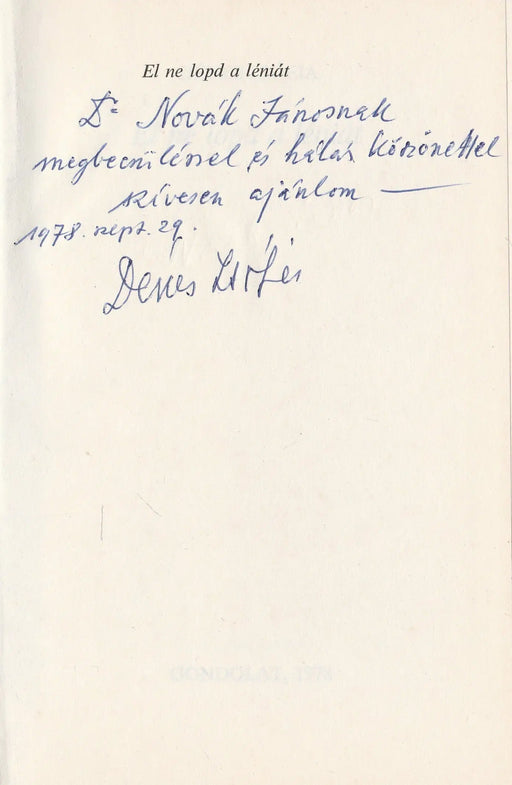 El ne lopd a léniát
Dr Novák Jánosnak
megbecsüléssel és hálás köszönettel
szívesen ajánlom —
1978. szept. 29.
Dénes Zsófia
GONDOLAT, 1978